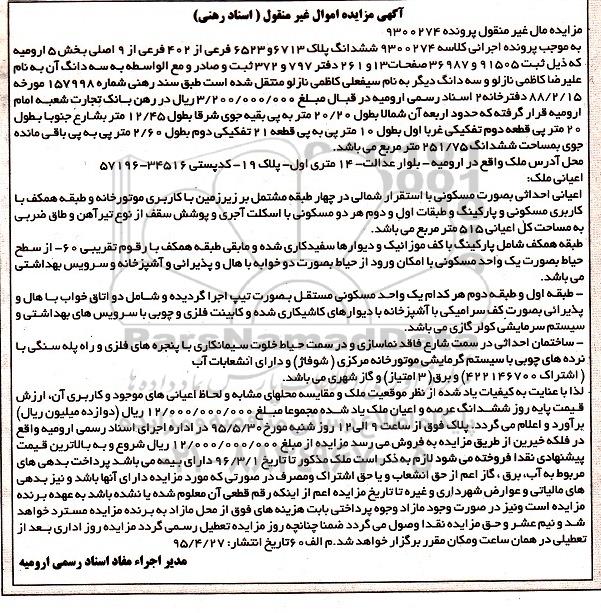 آگهی مزایده اموال غیر منقول ( اسناد رهنی)
مزایده مال غیر منقول پرونده ۹۳۰۰۲۷۴
به موجب پرونده اجرائی کلاسه ۹۳۰۰۲۷۴ ششدانگ پلاک ۶۷۱۳و۶۵۲۳ فرعی از ۴۰۲ فرعی از ۹ اصلی بخش ۵ ارومیه
که ذیل ثبت ۹۱۵۰۵ و ۳۶۹۸۷ صفحات۱۳و ۲۶۱ دفتر ۷۹۷ و ۳۷۲ ثبت و صادر و مع الواسطه به سه دانگ آن به نام
علیرضا کاظمی نازلو و سه دانگ دیگر به نام سیفعلی کاظمی نازلو منتقل شده است طبق سند رهنی شماره ۱۵۷۹۹۸ مورخه
۸۸/۲/۱۵ دفترخانه ۲ اسناد رسمی ارومیه در قبال مبلغ ۳/۲۰۰/۰۰۰/۰۰۰ ریال در رهن بانک تجارت شعبه امام
ارومیه قرار گرفته که حدود اربعه آن شمالا بطول ۲۰/۲۰ متر به پی بقیه جوی شرقا بطول ۱۲/۴۵ متر بشارع جنوبا بطول
۲۰ متر پی قطعه دوم تفکیکی غربا اول بطول ۱۰ متر پی به پی قطعه ۲۱ تفکیکی دوم بطول ۲/۶۰ متر پی به پی باقی مانده
جوی بمساحت ششدانگ ۲۵۱/۷۵ متر مربع می باشد.
محل آدرس ملک واقع در ارومیه - بلوار عدالت- ۱۴ متری اول- پلاک ۱۹- کدپستی ۳۴۵۱۶-۵۷۱۹۶
اعیانی ملک:
اعیانی احداثی بصورت مسکونی با استقرار شمالی در چهار طبقه مشتمل بر زیرزمین با کاربری موتورخانه و طبقه همکف با
کاربری مسکونی و پارکینگ و طبقات اول و دوم هر دو مسکونی با اسکلت آجری و پوشش سقف از نوع تیرآهن و طاق ضربی
به مساحت کل اعیانی ۵۱۵ متر مربع می باشد.
طبقه همکف شامل پارکینگ با کف موزائیک و دیوارها سفیدکاری شده و مابقی طبقه همکف با رقوم تقریبی ۶۰- از سطح
حیاط بصورت یک واحد مسکونی با امکان ورود از حیاط بصورت دو خوابه با هال و پذیرائی و آشپزخانه و سرویس بهداشتی
می باشد.
- طبقه اول و طبقه دوم هر کدام یک واحد مسکونی مستقل بصورت تیپ اجرا گردیده و شامل دو اتاق خواب با هال و
پذیرائی بصورت کف سرامیکی با آشپزخانه با دیوارهای کاشیکاری شده و کابینت فلزی و چوبی با سرویس های بهداشتی و
سیستم سرمایشی کولر گازی می باشد.
- ساختمان احداثی در سمت شارع فاقد نماسازی و در سمت حیاط خلوت سیمانکاری با پنجره های فلزی و راه پله سنگی با
نرده های چوبی با سیستم گرمایشی موتورخانه مرکزی ( شوفاژ) و دارای انشعابات آب
( اشتراک ۴۲۲۱۴۶۷۰۰) و برق( ۳ امتیاز) و گاز شهری می باشد.
لذا با عنایت به کیفیات یاد شده از نظر موقعیت ملک و مقایسه محلهای مشابه و لحاظ اعیانی های موجود و کاربری آن، ارزش
قیمت پایه روز ششدانگ عرصه و اعیان ملک یاد شده مجموعا مبلغ ۱۲/۰۰۰/۰۰۰/۰۰۰ ریال (دوازده میلیون ریال)
برآورد و اعلام می گردد. پلاک فوق از ساعت ۹ الی۱۲ روز شنبه مورخ ۹۵/۵/۳۰ در اداره اجرای اسناد رسمی ارومیه واقع
در فلکه خیرین از طریق مزایده به فروش می رسد مزایده از مبلغ ۱۲/۰۰۰/۰۰۰/۰۰۰ ریال شروع و به بالاترین قیمت
پیشنهادی نقدا فروخته می شود لازم به ذکر است ملک مذکور تا تاریخ ۹۶/۳/۱ دارای بیمه می باشد پرداخت بدهی های
مربوط به آب، برق ، گاز اعم از حق انشعاب و یا حق اشتراک و مصرف در صورتی که مورد مزایده دارای آنها باشد و نیز بدهی
های مالیاتی و عوارض شهرداری و غیره تا تاریخ مزایده اعم از اینکه رقم قطعی آن معلوم شده یا نشده باشد به عهده برنده
مزایده است ونیز در صورت وجود مازاد وجوه پرداختی بابت هزینه های فوق از محل مازاد به برنده مزایده مسترد خواهد
شد و نیم عشر و حق مزایده نقدا وصول می گردد ضمنا چنانچه روز مزایده تعطیل رسمی گردد مزایده روز اداری بعد از
تعطیلی در همان ساعت ومکان مقرر برگزار خواهد شد.م الف ۶۰تاریخ انتشار: ۹۵/۴/۲۷
مدیر اجراء مفاد اسناد رسمی ارومیه